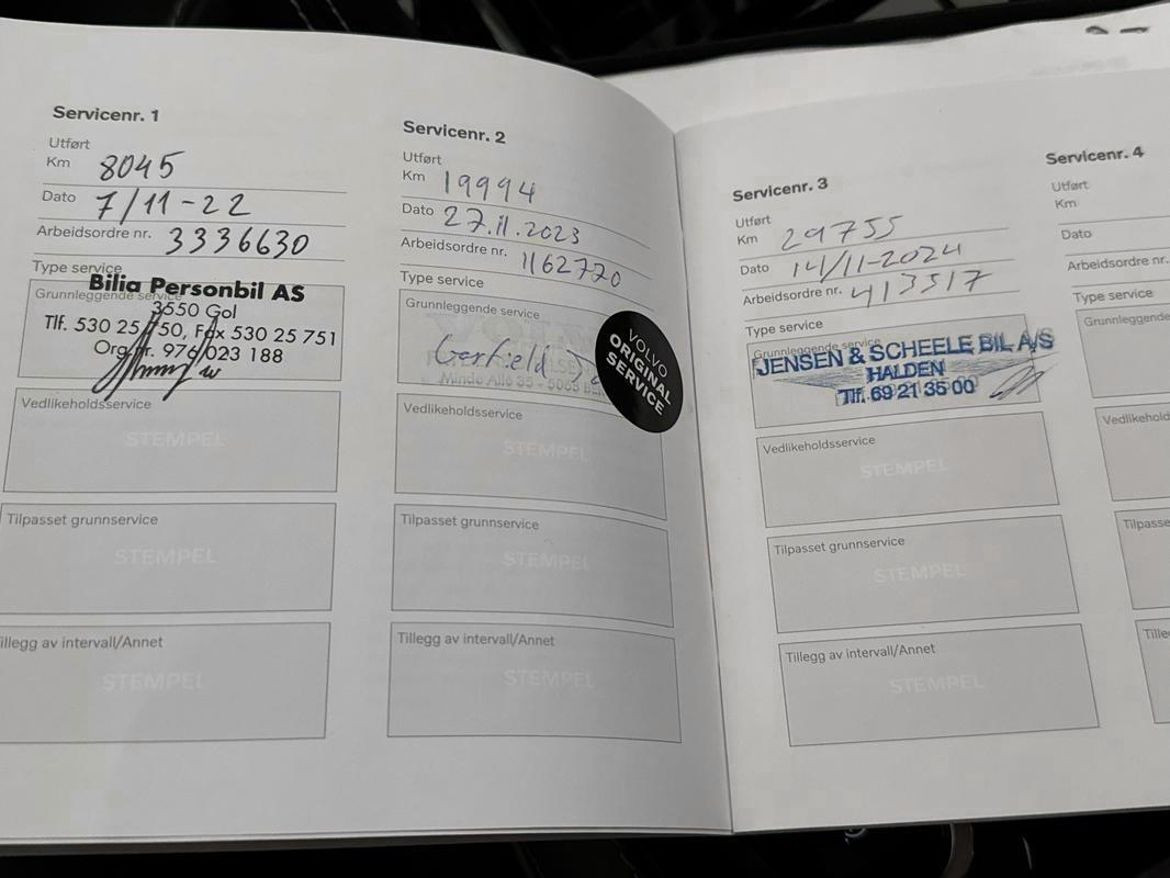 Servicenr. 1
Utført
Km 8045
Dato 7/11-22
Arbeidsordre nr. 3336630
Type service
Grunnleggende service
Bilia Personbil AS
3550 Gol
Tlf. 530 25 750, Fax 530 25 751
Org.nr. 976 023 188
Vedlikeholdsservice
STEMPEL
Tilpasset grunnservice
STEMPEL
illegg av intervall/Annet
STEMPEL
Servicenr. 2
Utført
Km 19994
Dato 27.11.2023
Arbeidsordre nr. 1162770
Type service
Grunnleggende service
Minde Allé 35 - 5068
VOLVO
ORIGINAL
SERVICE
Vedlikeholdsservice
STEMPEL
Tilpasset grunnservice
STEMPEL
Tillegg av intervall/Annet
STEMPEL
Servicenr. 3
Utført
Km 29755
Dato 14/11-2024
Arbeidsordre nr. 413517
Type service
Grunnleggende service
JENSEN & SCHEELE BIL A/S
HALDEN
Tlf. 69 21 35 00
Vedlikeholdsservice
STEMPEL
Tilpasset grunnservice
STEMPEL
Tillegg av intervall/Annet
STEMPEL
Servicenr. 4
Utført
Km
Dato
Arbeidsordre nr.
Type service
Grunnleggende
Vedlikehold
Tilpasse
Tille